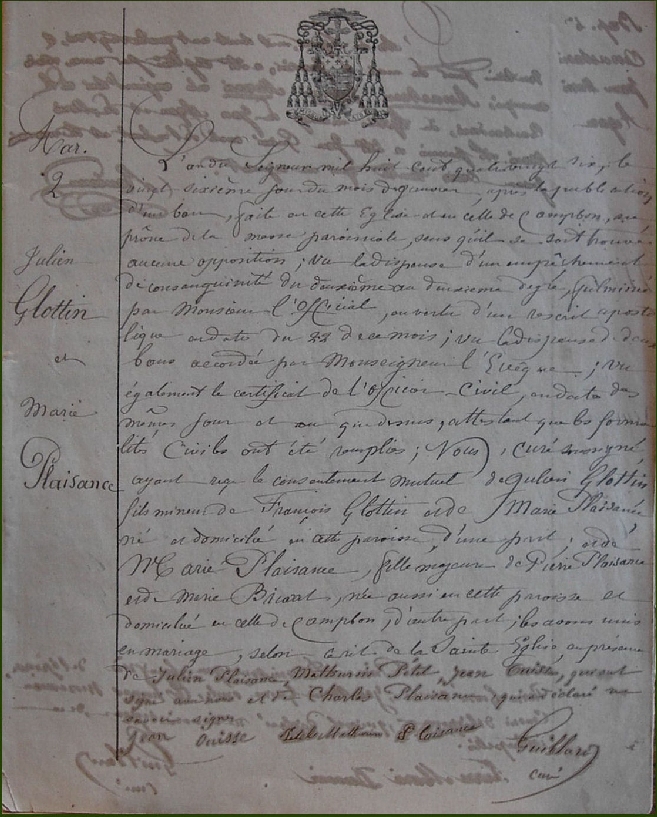 Mar.
2
Julien
Glottin
et
Marie
Plaisance
L'an du Seigneur mil huit cent quatrevingt six, le
vingt sixième jour du mois de janvier, après la publication
d'un ban, faite en cette Eglise et en celle de Campbon, au
prône de la messe paroissiale, sans qu'il se soit trouvé
aucune opposition ; vu la dispense d'un empêchement
de consanguinité du deuxième au deuxième degré, fulminée
par Monsieur l'Official, en vertu d'un rescrit aposto
lique en date du 22 de ce mois ; vu la dispense de deux
bans accordée par Monseigneur l'Evêque ; vu
également le certificat de l'Officier Civil, en date des
mêmes jour et an que dessus, attestant que les forma
lités Civiles ont été remplies ; Nous, curé soussigné
ayant reçu le consentement mutuel de Julien Glottin
fils mineur de François Glottin et de Marie Plaisance
né et domicilié en cette paroisse, d'une part ; et de
Marie Plaisance, fille majeure de Pierre Plaisance
et de Marie Bivaat, née aussi en cette paroisse et
domiciliée en celle de Campbon, d'autre part ; les avons unis
en mariage, selon le rit de la Sainte Eglise, en présence
de Julien Plaisance, Mathurin Petit, Jean Ouisse, qui ont
signé avec nous et de Charles Plaisance, qui a déclaré ne
savoir signer
Jean Ouisse Petit Mathurin P Plaisance Guillard
curé